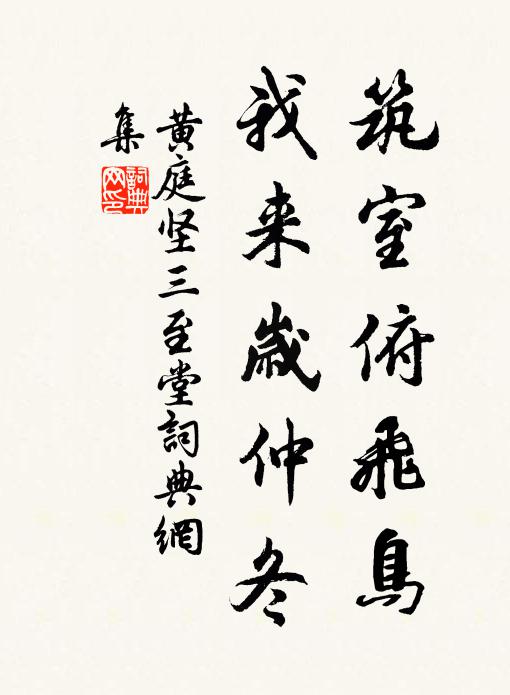 筑室俯飛鳥
我来歲仲冬
黄庭坚三至堂詞典網
集
詞典网印